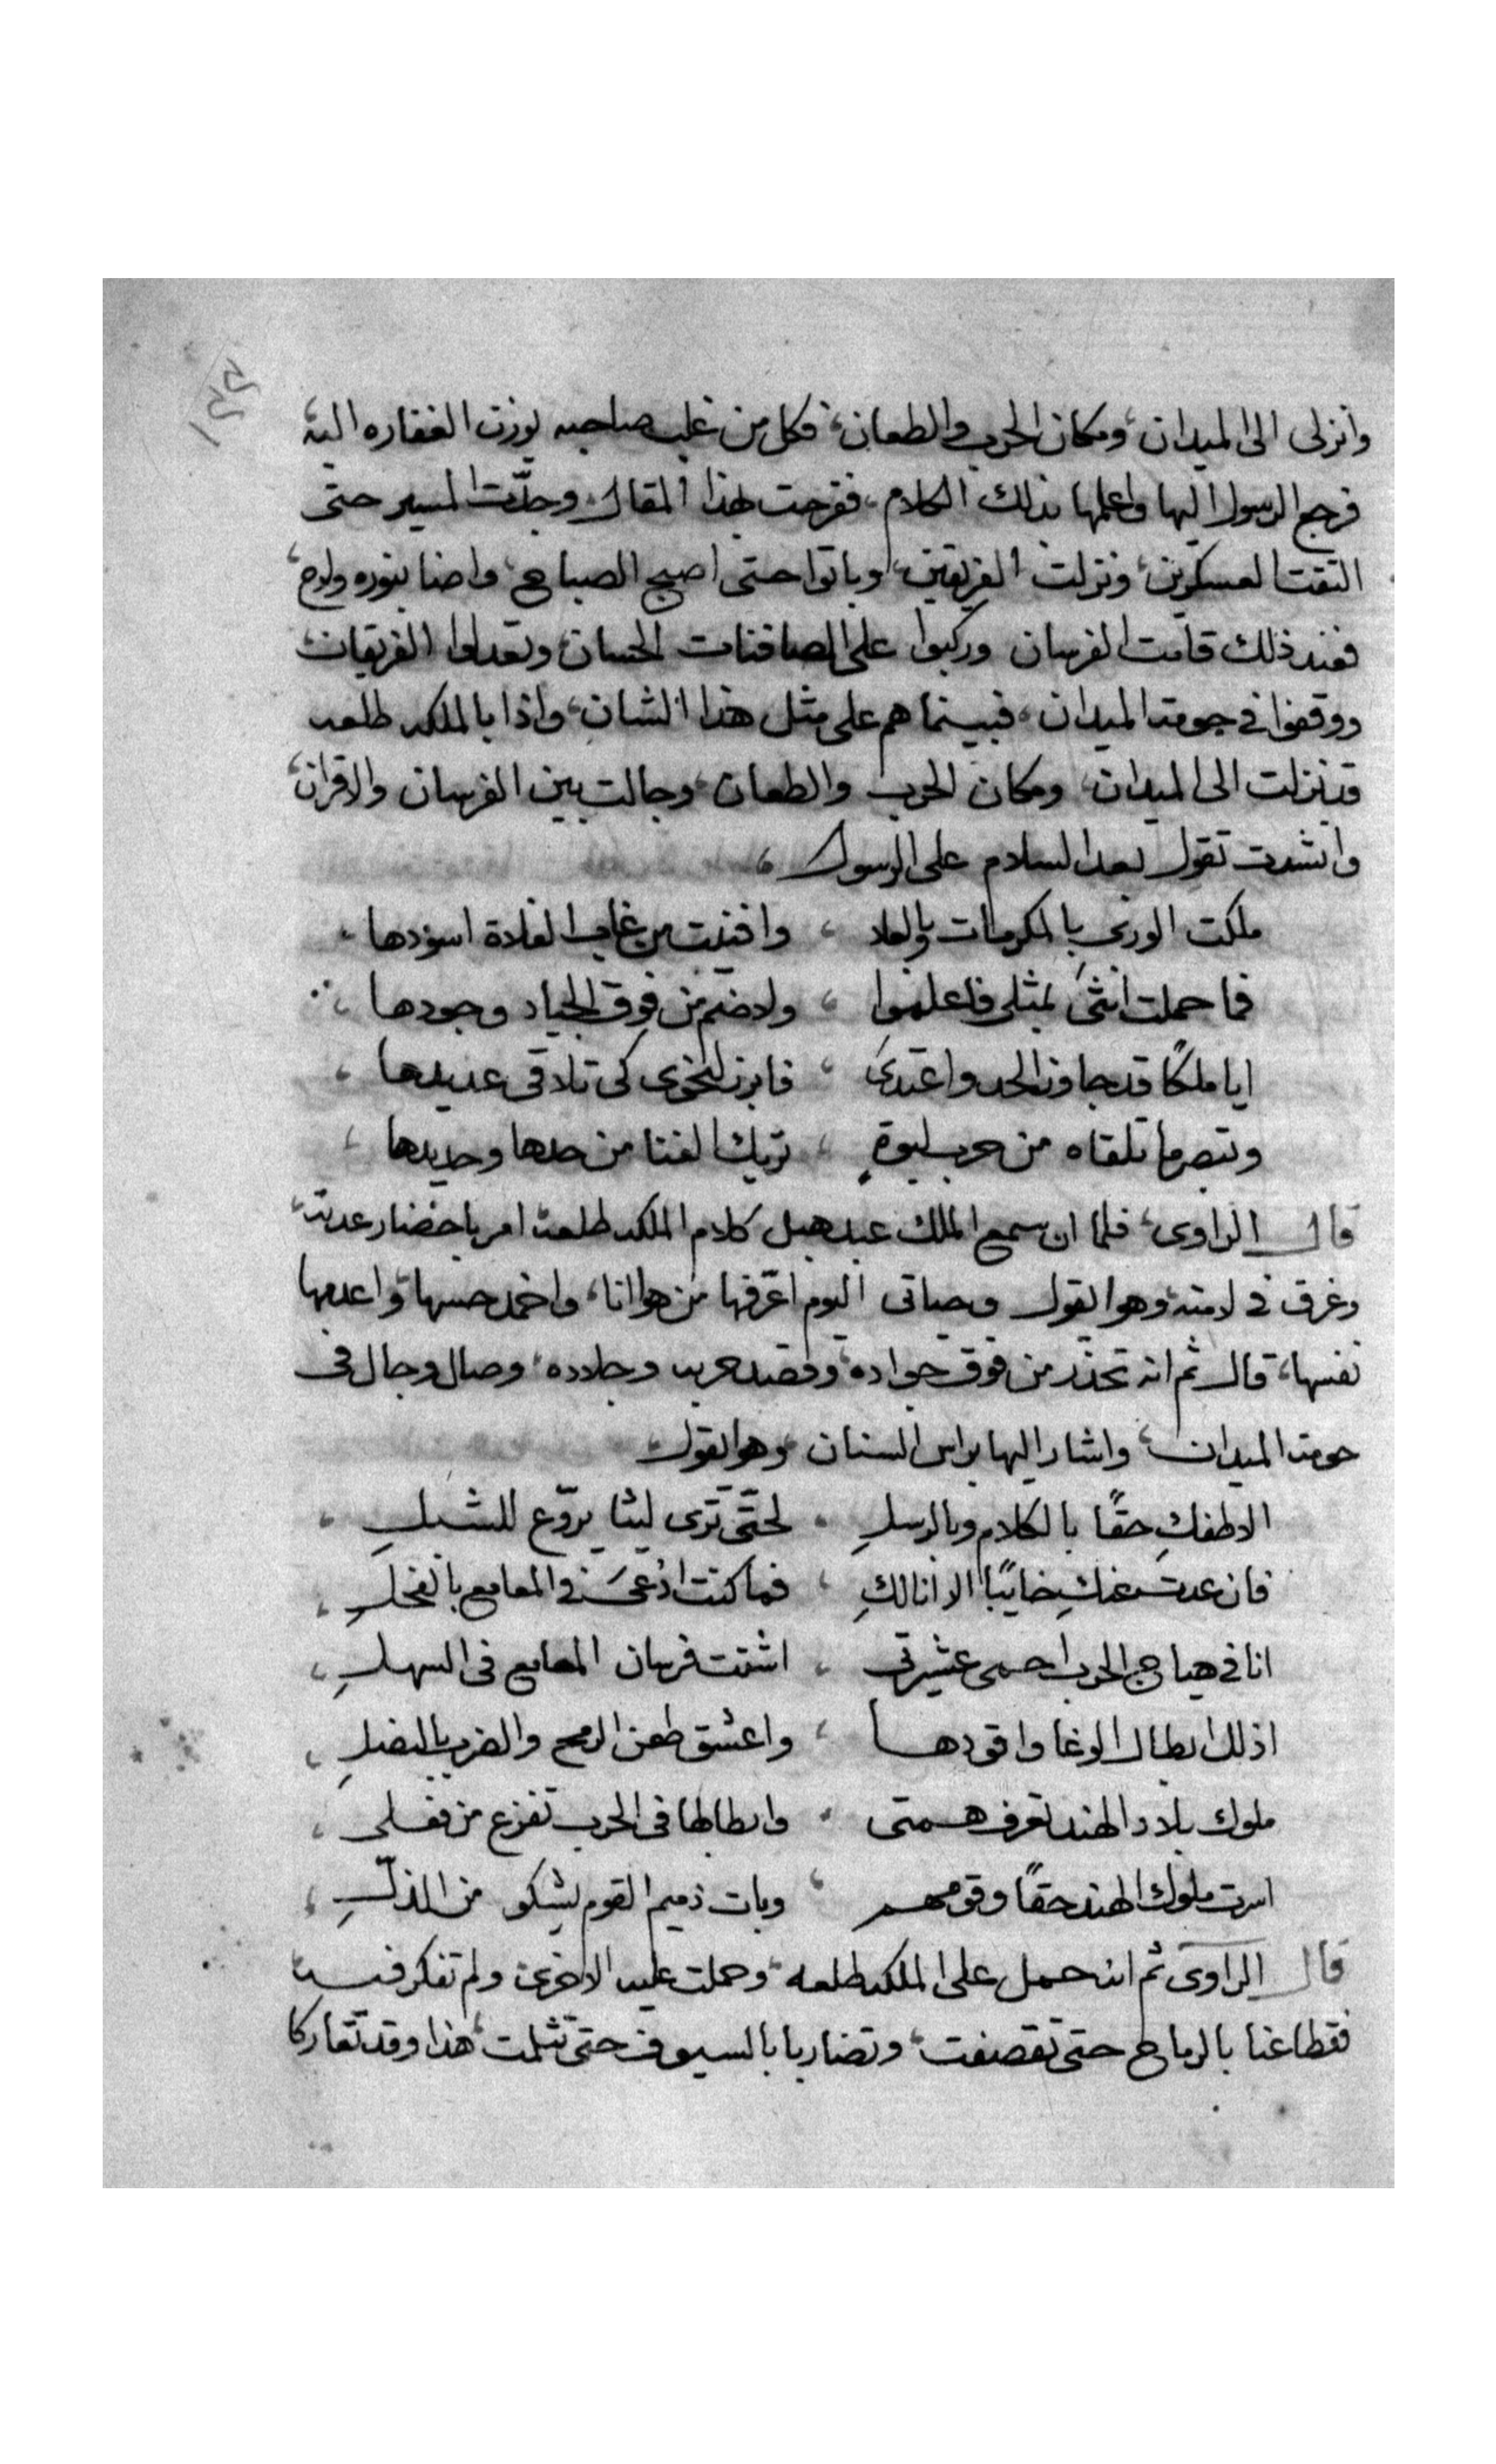 وانزلى الى الميدان، ومكان الحرب والطعان، فكل من غلب صاحبه يوزن الغفاره اليه،
فرجع الرسول اليها واعلمها بذلك الكلام، ففرحت بهذا المقال، وجدّت المسير حتى
التقت العسكرين، ونزلت الفريقين، وباتوا حتى اصبح الصباح، واضا بنوره ولاح،
فعند ذلك قامت الفرسان وركبوا على الصافنات الحسان، وتعدلوا الفريقان،
ووقفوا فى حومة الميدان، فبينما هم على مثل هذا الشان، واذا بالملكه طلعه
قد نزلت الى الميدان، ومكان الحرب والطعان، وجالت بين الفرسان والاقران،
وانشدت تقول بعد السلام على الرسول،
ملكت الورى بالمكرمات والعلا ، وافنيت من غاب الفلاة اسودها،
فما حملت انثى بمثلى فاعلموا ، ولا ضم من فوق الجياد وجودها،
ايا ملكًا قد جاوز الحد واعتدى ، فابرز لنحوى كى تلاقى عديدها،
وتبصر ما تلقاه من حرب لبوةٍ ، تريك الفنا من حدها وحديدها،
قال الراوى، فلما ان سمع الملك عبد هبل كلام الملكه طلعه امر باحضار عدته،
وغرق فى لامته، وهو يقول وحياتى اليوم اعرّفها من هو انا، واخمد حسها، واعدمها
نفسها، قال ثم انه تحدّر من فوق جواده، وقصد حربه وجلاده، وصال وجال فى
حومة الميدان، واشار اليها براس السنان، وهو يقول،
الاطفكِ حقًا بالكلام وبالرسلِ ، لحتّى ترى ليثا يروّع للشبلِ،
فان عدت عنكِ خايبًا الا انا لكِ ، فما كنت ادعى فى المعامع بالفحلِ،
انا فى هياج الحرب احمى عشيرتى ، اشتت فرسان المعامع فى السهلِ،
اذلك ابطال الوغا واقودها ، واعشق طعن الرمح والضرب بالنصلِ،
ملوك بلاد الهند تعرف همتى ، وابطالها فى الحرب تفزع من فعلى،
اسرت ملوك الهند حقًا وقومهم ، وبات ذميم القوم يشكو من الذلّ،
قال الراوى ثم انه حمل على الملكه طلعه، وحملت عليه الاخرى، ولم تفكر فيه،
فقطاعنا بالرماح حتى تقصفت، وتضاربا بالسيوف حتى تثلمت، هذا وقد تعاركا